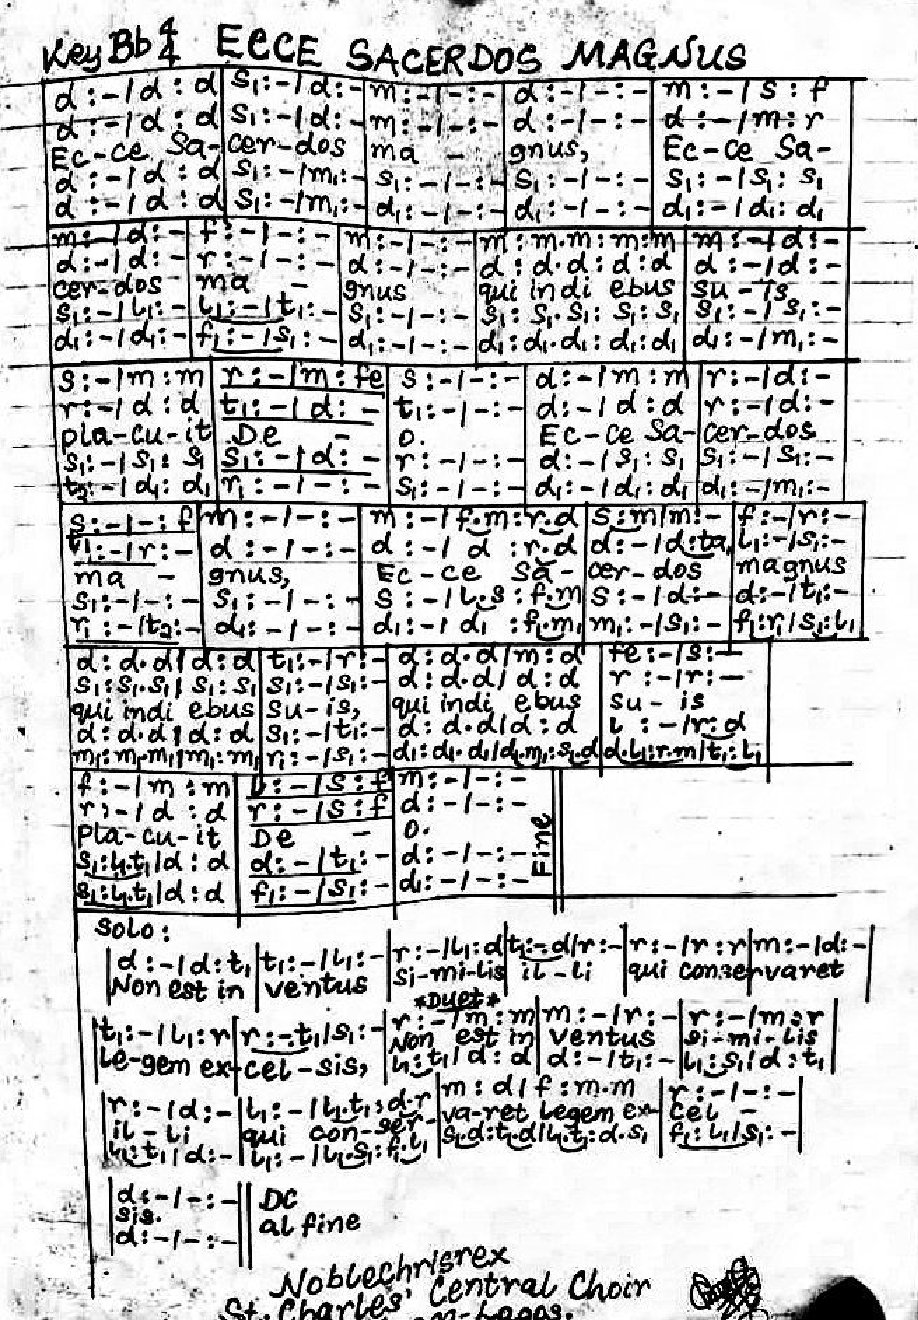 Key Bb 4/4 ECCE SACERDOS MAGNUS
d :- / d : d | s₁:- / d :- | m :- / - :- | d :- / - :- | m :- / s : f
d :- / d : d | s₁:- / d :- | m :- / - :- | d :- / - :- | d :- / m : r
Ec-ce Sa- | cer-dos | ma - | gnus, | Ec-ce Sa-
d :- / d : d | s₁:- / m₁:- | s₁:- / - :- | s₁:- / - :- | s₁:- / s₁: s₁
d :- / d : d | s₁:- / m₁:- | d₁:- / - :- | d₁:- / - :- | d₁:- / d₁: d₁
m :- / d :- | f :- / - :- | m :- / - :- | m : m.m : m : m | m :- / d :-
d :- / d :- | r :- / - :- | d :- / - :- | d : d.d : d : d | d :- / d :-
cer-dos | ma - | gnus | qui in di ebus | su - is
s₁:- / l₁:- | l₁:- / t₁:- | s₁:- / - :- | s₁: s₁.s₁: s₁: s₁ | s₁:- / s₁:-
d₁:- / d₁:- | f₁:- / s₁:- | d₁:- / - :- | d₁: d₁.d₁: d₁: d₁ | d₁:- / m₁:-
s :- / m : m | r :- / m : fe | s :- / - :- | d :- / m : m | r :- / d :-
r :- / d : d | t₁:- / d :- | t₁:- / - :- | d :- / d : d | r :- / d :-
pla-cu-it | De - | o. | Ec-ce Sa- | cer-dos
s₁:- / s₁: s₁ | s₁:- / d :- | r :- / - :- | d :- / s₁: s₁ | s₁:- / s₁:-
t₂:- / d₁: d₁ | r₁:- / - :- | s₁:- / - :- | d₁:- / d₁: d₁ | d₁:- / m₁:-
s :- / - : f | m :- / - :- | m :- / f.m : r.d | s : m / m :- | f :- / r :-
t₁:- / r :- | d :- / - :- | d :- / d : r.d | d :- / d : ta₁ | l₁:- / s₁:-
ma - | gnus, | Ec-ce Sa- | cer-dos | magnus
s₁:- / - :- | s₁:- / - :- | s :- / l.s : f.m | s :- / d :- | d :- / t₁:-
r₁:- / t₂:- | d₁:- / - :- | d₁:- / d₁ : f₁.m₁ | m₁:- / s₁:- | f₁: r₁ / s₁: l₁
d : d.d / d : d | t₁:- / r :- | d : d.d / m : d | fe :- / s :-
s₁: s₁.s₁ / s₁: s₁ | s₁:- / s₁:- | d : d.d / d : d | r :- / r :-
qui in di ebus | su-is, | qui in di ebus | su - is
d : d.d / d : d | s₁:- / t₁:- | d : d.d / d : d | l :- / r : d
m₁: m₁.m₁ / m₁: m₁ | r₁:- / s₁:- | d₁: d₁.d₁ / d₁.m₁: s₁.d | d.l₁: r.m / t₁: l₁
f :- / m : m | :- / s : f | m :- / - :-
r :- / d : d | r :- / s : f | d :- / - :-
Pla-cu-it | De - | o. Fine
s₁: l₁.t₁ / d : d | d :- / t₁:- | d :- / - :-
s₁: l₁.t₁ / d : d | f₁:- / s₁:- | d :- / - :-
Solo:
d :- / d : t₁ | t₁:- / l₁:- | r :- / l₁: d | t₁:- d / r :- | r :- / r : r | m :- / d :-
Non est in | ventus | si-mi-lis | il - li | qui conservaret
*Duet*
t₁:- / l₁: r | r :- t₁ / s₁:- | r :- / m : m | m :- / r :- | r :- / m : r
le-gem ex- | cel-sis, | Non est in | ventus | si-mi-lis
l₁: t₁ / d : d | d :- / t₁:- | l₁: s₁ / d : t₁
r :- / d :- | l₁:- / l₁.t₁: d.r | m : d / f : m.m | r :- / - :-
il - li | qui con-ser- | va-ret legem ex- | cel -
l₁: t₁ / d :- | l₁:- / l₁.s₁: f₁.l₁ | s₁.d : t₁.d / l₁.t₁: d.s₁ | f₁: l₁ / s₁:-
d :- / - :- || DC
sis. || al fine
d :- / - :-
Noblechrisrex
St. Charles' Central Choir
-Lagos.